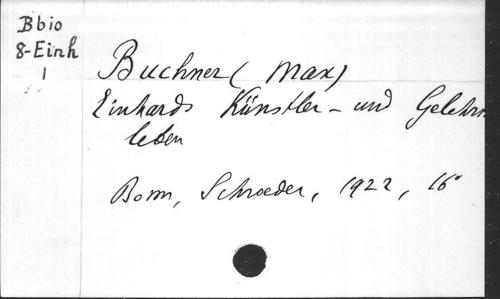 Bbio
8-Einh
1
Buchner (Max)
Einhards Künstler- und Gelehrten
leben
Bonn, Schroeder, 1922, 16°